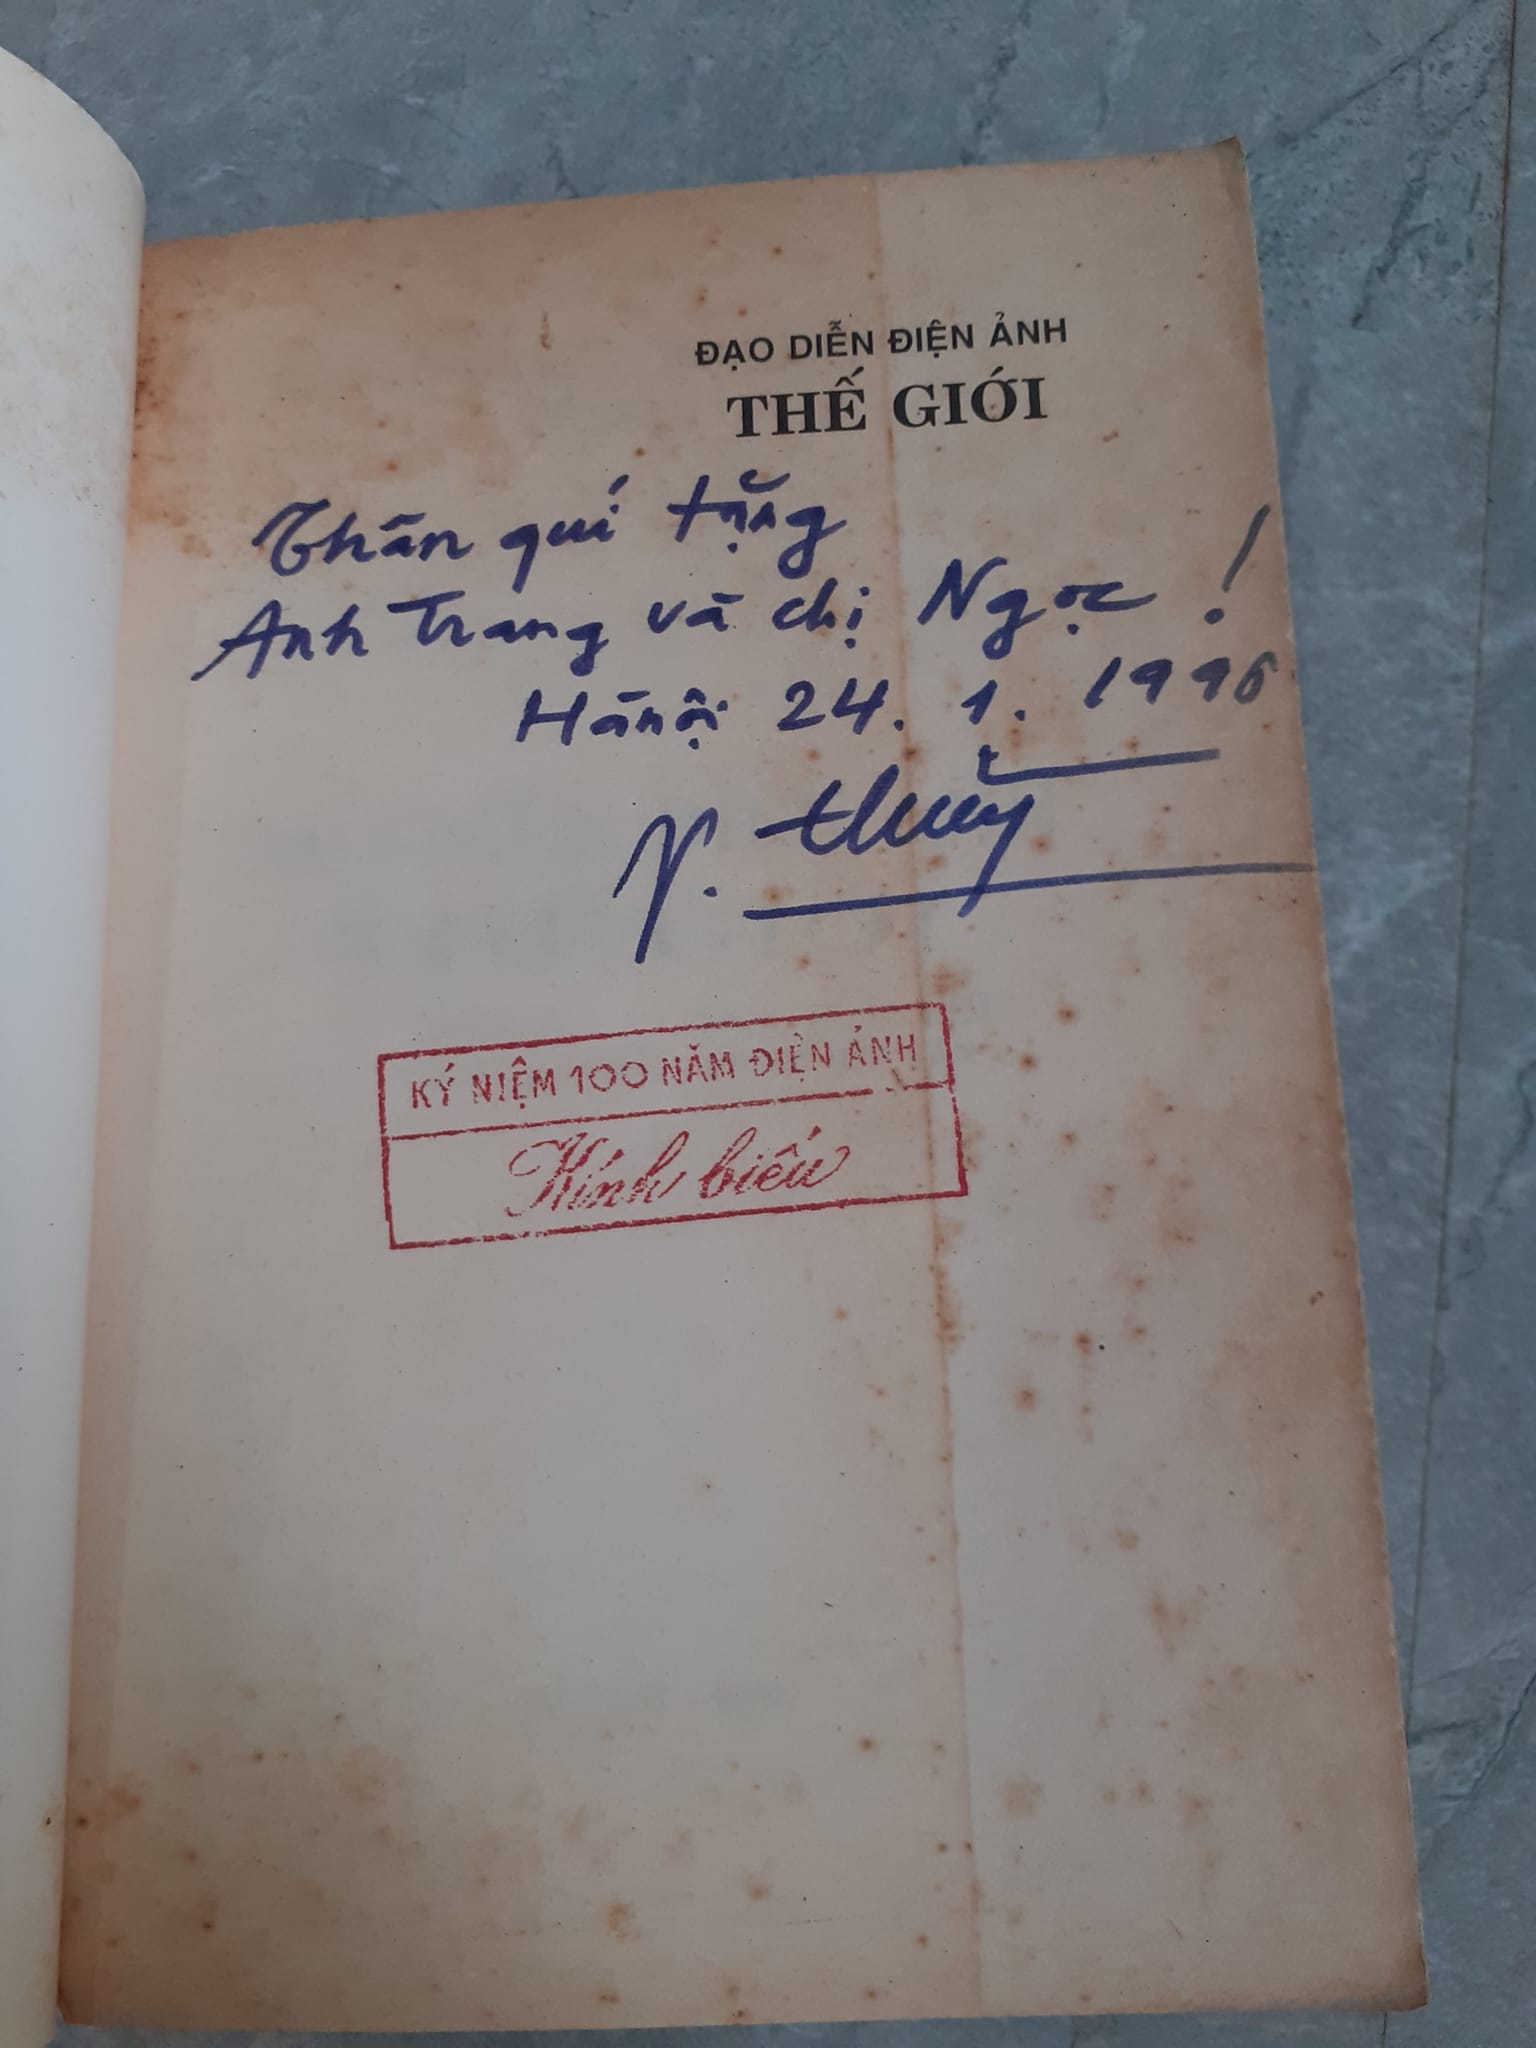 ĐẠO DIỄN ĐIỆN ẢNH
THẾ GIỚI
Thân quí tặng
Anh Trang và chị Ngọc !
Hà nội 24. 1. 1996
V. Thủy
KỶ NIỆM 100 NĂM ĐIỆN ẢNH
Kính biếu